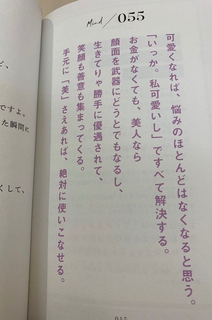 Mind / 055
可愛くなれば、悩みのほとんどはなくなると思う。
「いっか。私可愛いし」ですべて解決する。
お金がなくても、美人なら
顔面を武器にどうとでもなるし、
生きてりゃ勝手に優遇されて、
笑顔も善意も集まってくる。
手元に「美」さえあれば、絶対に使いこなせる。
ですよ、
た瞬間に
くして、